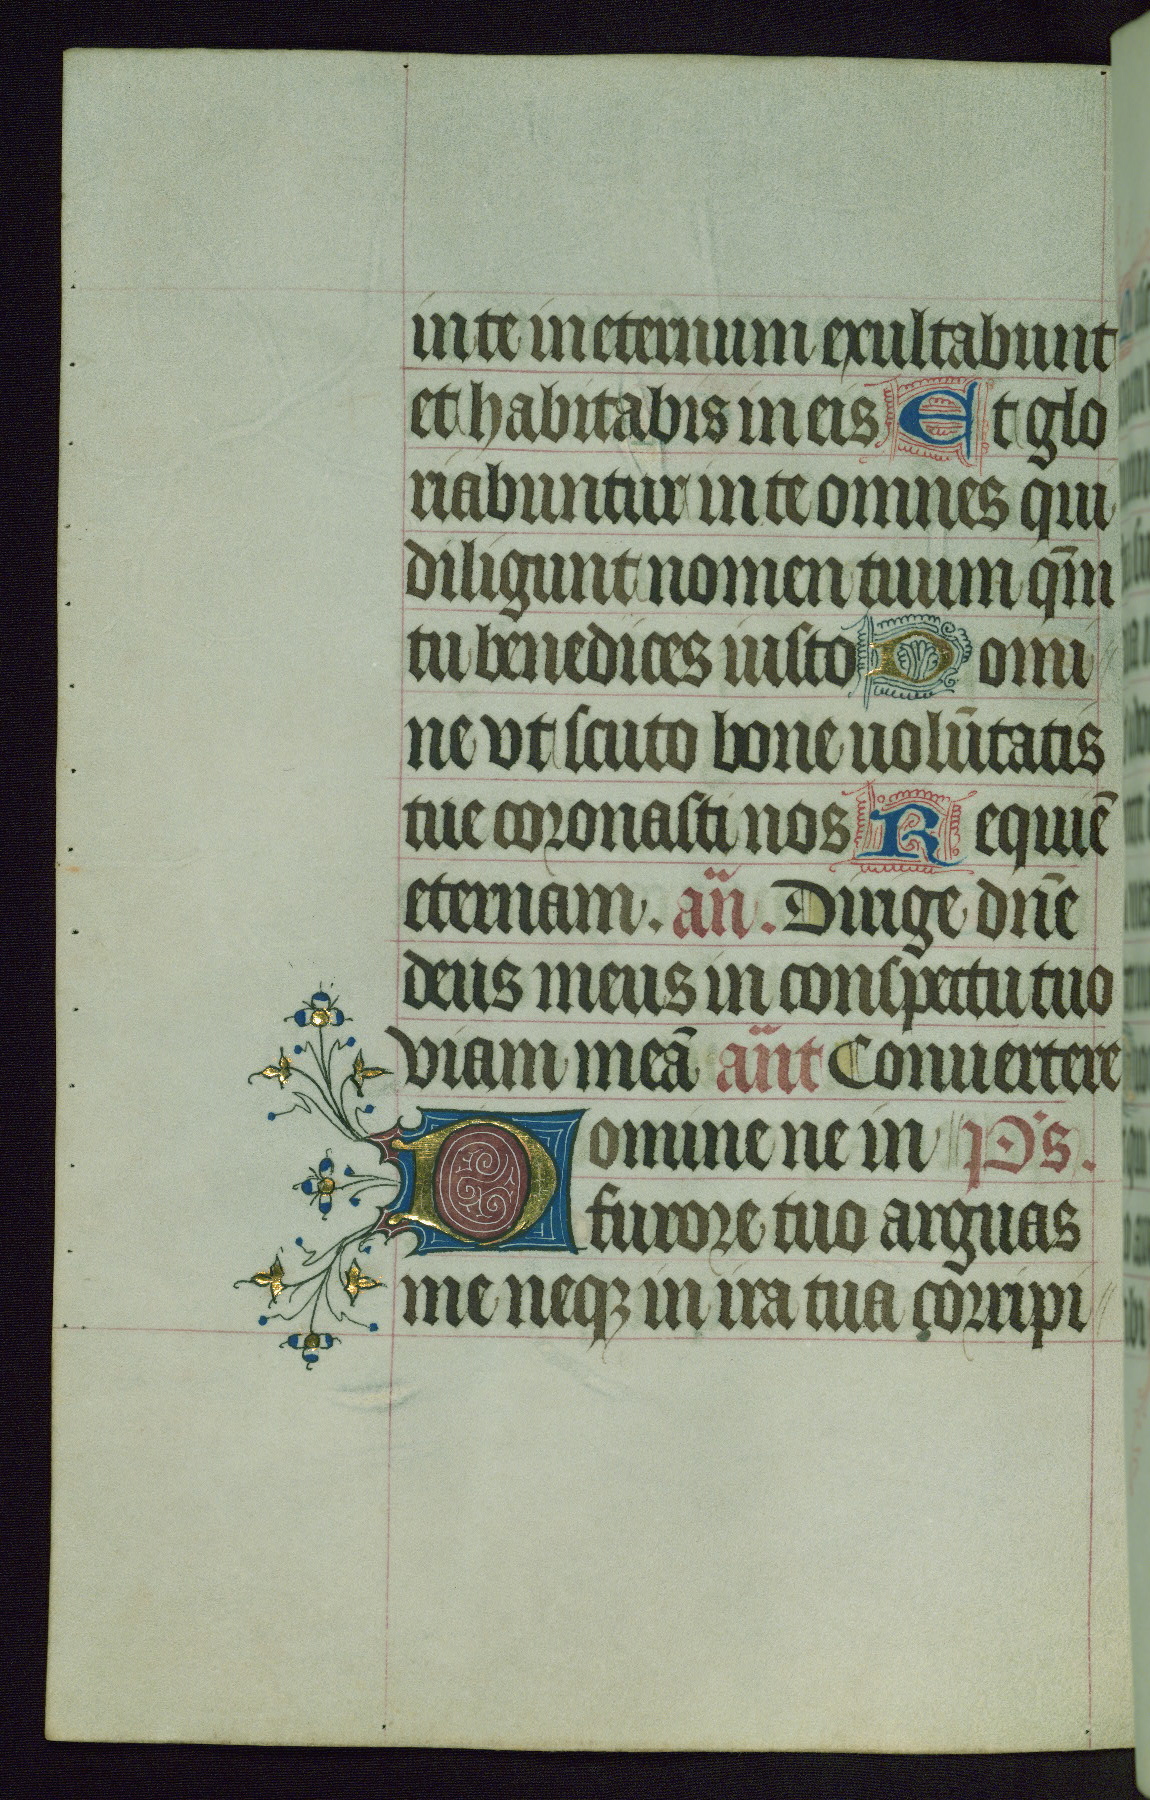 in te in eternum exultabunt
et habitabis in eis Et glo
riabuntur in te omnes qui
diligunt nomen tuum qm̄
tu benedices iusto Domi
ne vt scuto bone uolūtatis
tue coronasti nos Requiē
eternam. an̄. Dirige dn̄e
deus meus in conspectu tuo
viam meā an̄t Conuertere
Domine ne in ps.
furore tuo arguas
me neqꝫ in ira tua corripi